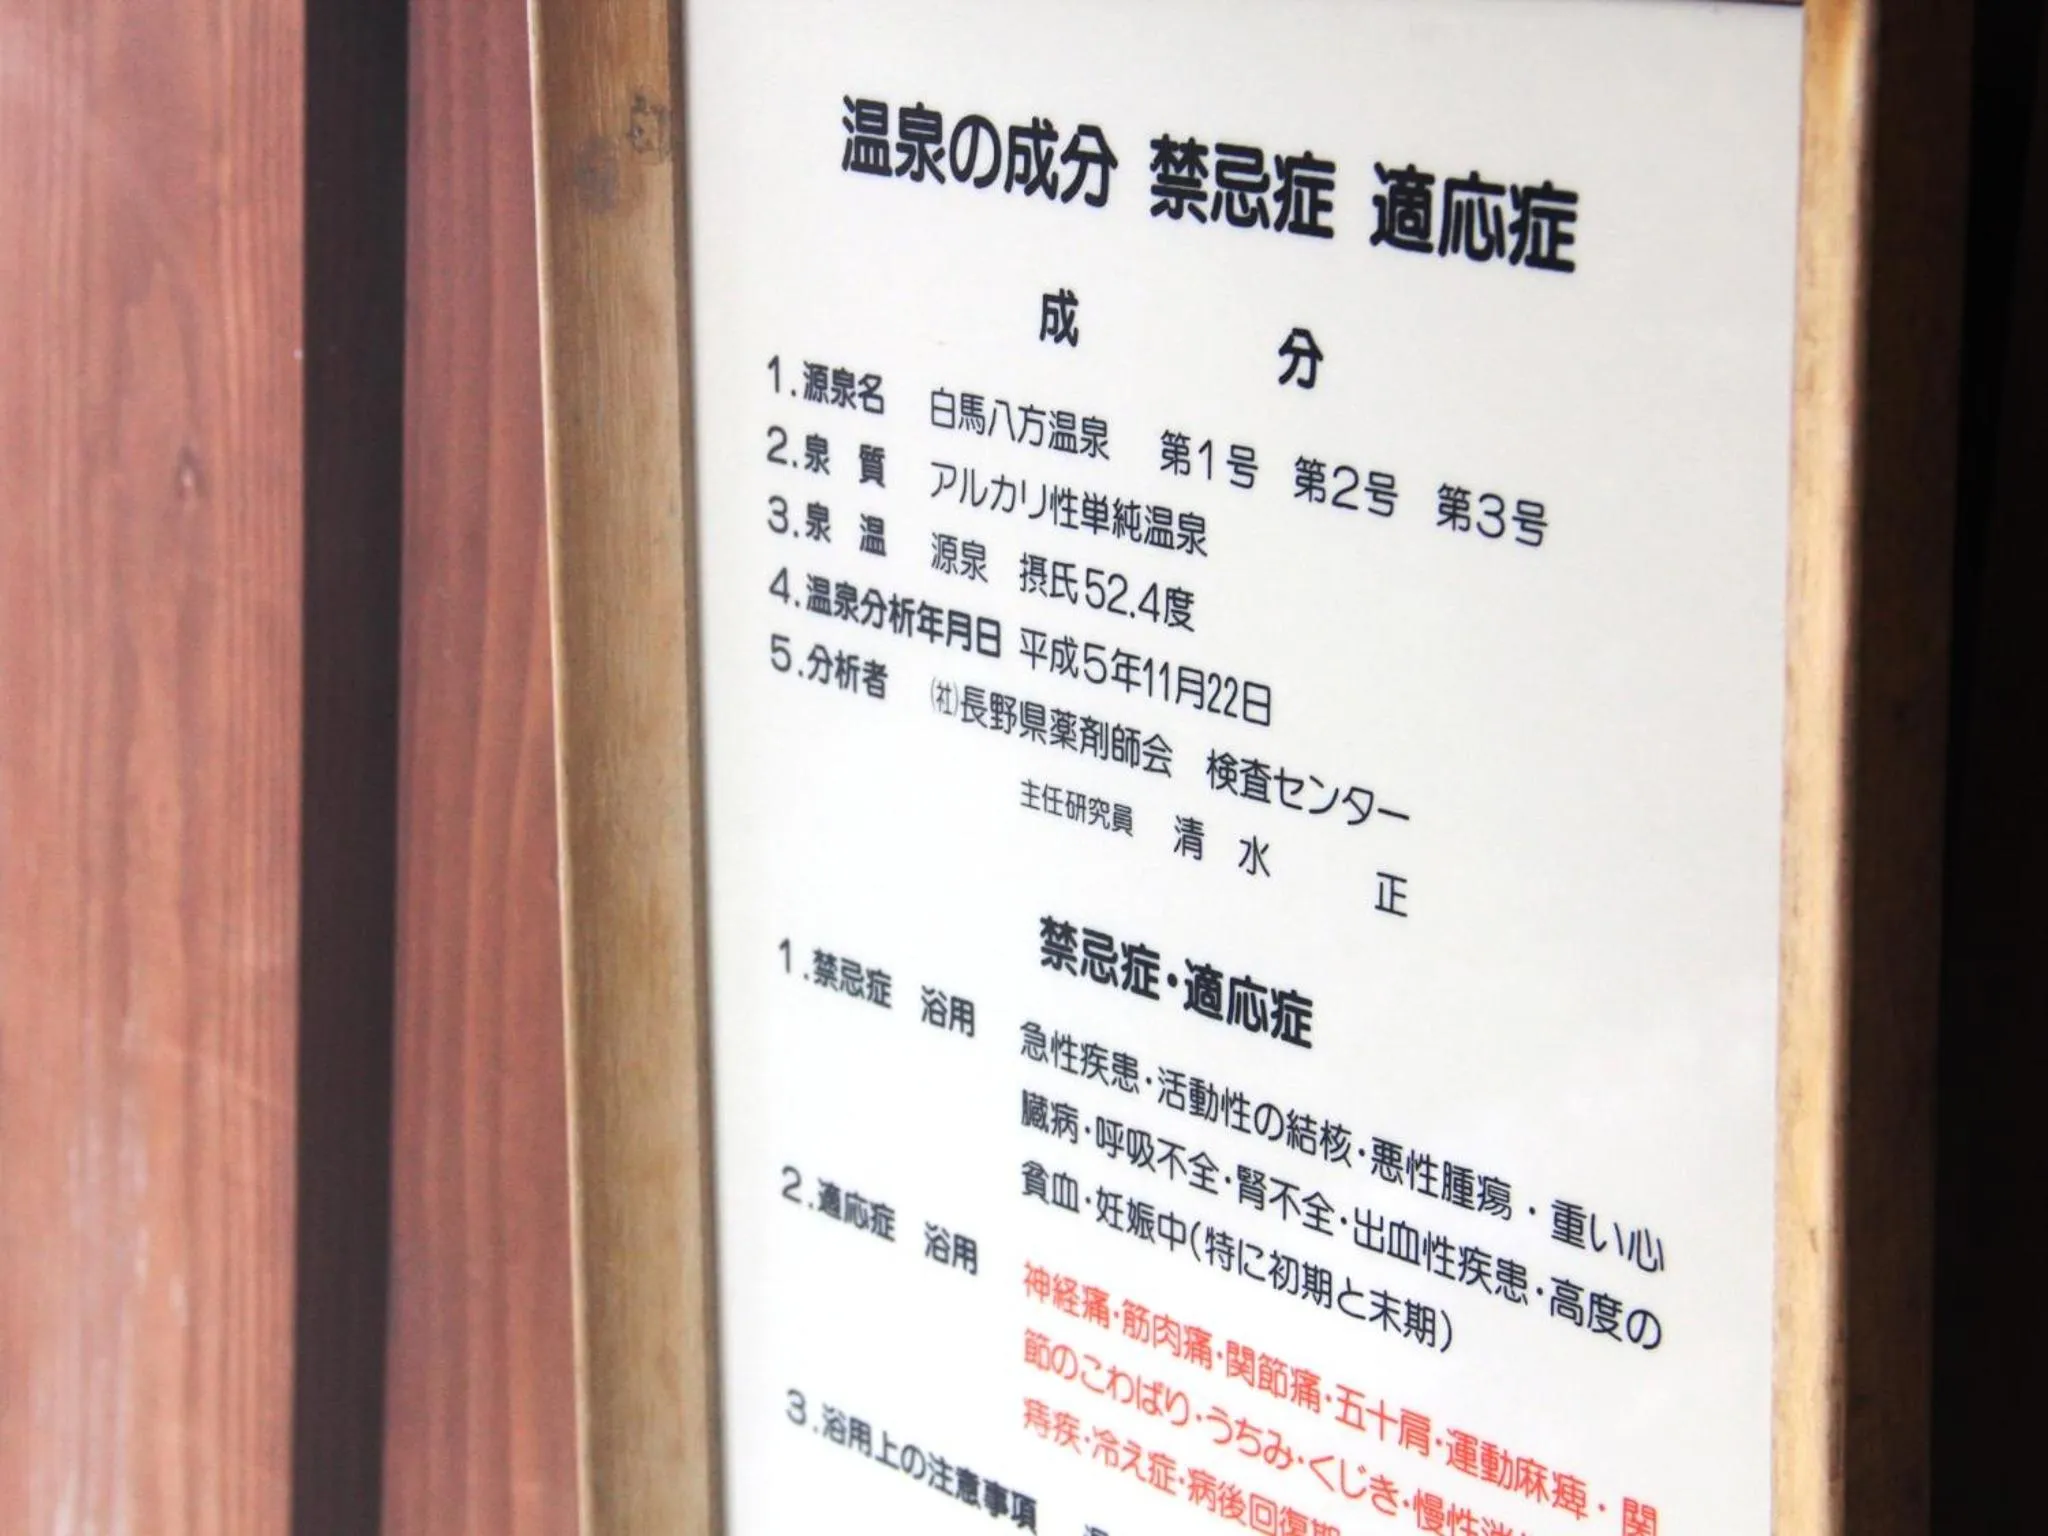 温泉の成分 禁忌症 適応症
成 分
1.源泉名 白馬八方温泉 第1号 第2号 第3号
2.泉 質 アルカリ性単純温泉
3.泉 温 源泉 摂氏52.4度
4.温泉分析年月日 平成5年11月22日
5.分析者 ㈳長野県薬剤師会 検査センター
主任研究員 清 水 正
禁忌症・適応症
1.禁忌症 浴用 急性疾患・活動性の結核・悪性腫瘍・重い心
臓病・呼吸不全・腎不全・出血性疾患・高度の
貧血・妊娠中(特に初期と末期)
2.適応症 浴用 神経痛・筋肉痛・関節痛・五十肩・運動麻痺・関
節のこわばり・うちみ・くじき・慢性
痔疾・冷え症・病後回復
3.浴用上の注意事項